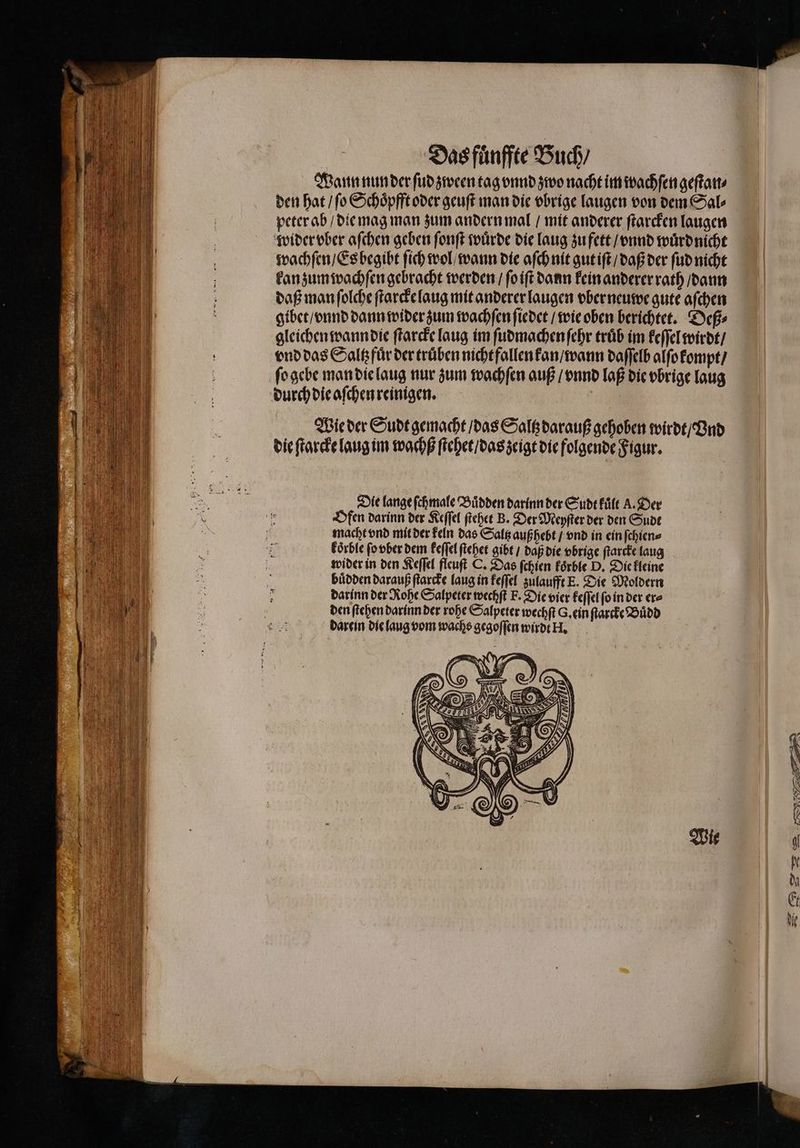 Das fünffte Buch/
Wann nun der sud zween tag vnnd zwo nacht im wachsen gestan⸗
den hat / so Schöpfft oder geust man die vbrige laugen von dem Sal⸗
peter ab / die mag man zum andern mal / mit anderer starcken laugen
wider vber aschen geben sonst würde die laug zu fett / vnnd würd nicht
wachsen / Es begibt sich wol / wann die asch nit gut ist / daß der sud nicht
kan zum wachsen gebracht werden / so ist dann kein anderer rath / dann
daß man solche starcke laug mit anderer laugen vber neuwe gute aschen
gibet / vnnd dann wider zum wachsen siedet / wie oben berichtet. Deß⸗
gleichen wann die starcke laug im sudmachen sehr trüb im kessel wirdt /
vnd das Saltz für der trüben nicht fallen kan / wann dasselb also kompt /
so gebe man die laug nur zum wachsen auß / vnnd laß die vbrige laug
durch die aschen reinigen.
Wie der Sudt gemacht / das Saltz darauß gehoben wirdt / Vnd
die starcke laug im wachß stehet / das zeigt die folgende Figur.
Die lange schmale Büdden darinn der Sudt kült A. Der
Ofen darinn der Kessel stehet B. Der Meyster der den Sudt
macht vnd mit der keln das Saltz außhebt / vnd in ein schien⸗
körble so vber dem kessel stehet gibt / daß die vbrige starcke laug
wider in den Kessel fleust C. Das schien körble D. Die kleine
büdden darauß starcke laug in kessel zulaufft E. Die Moldern
darinn der Rohe Salpeter wechst F. Die vier kessel so in der er⸗
den stehen darinn der rohe Salpeter wechst G. ein starcke Büdd
darein die laug vom wachs gegossen wirdt H.
Wie